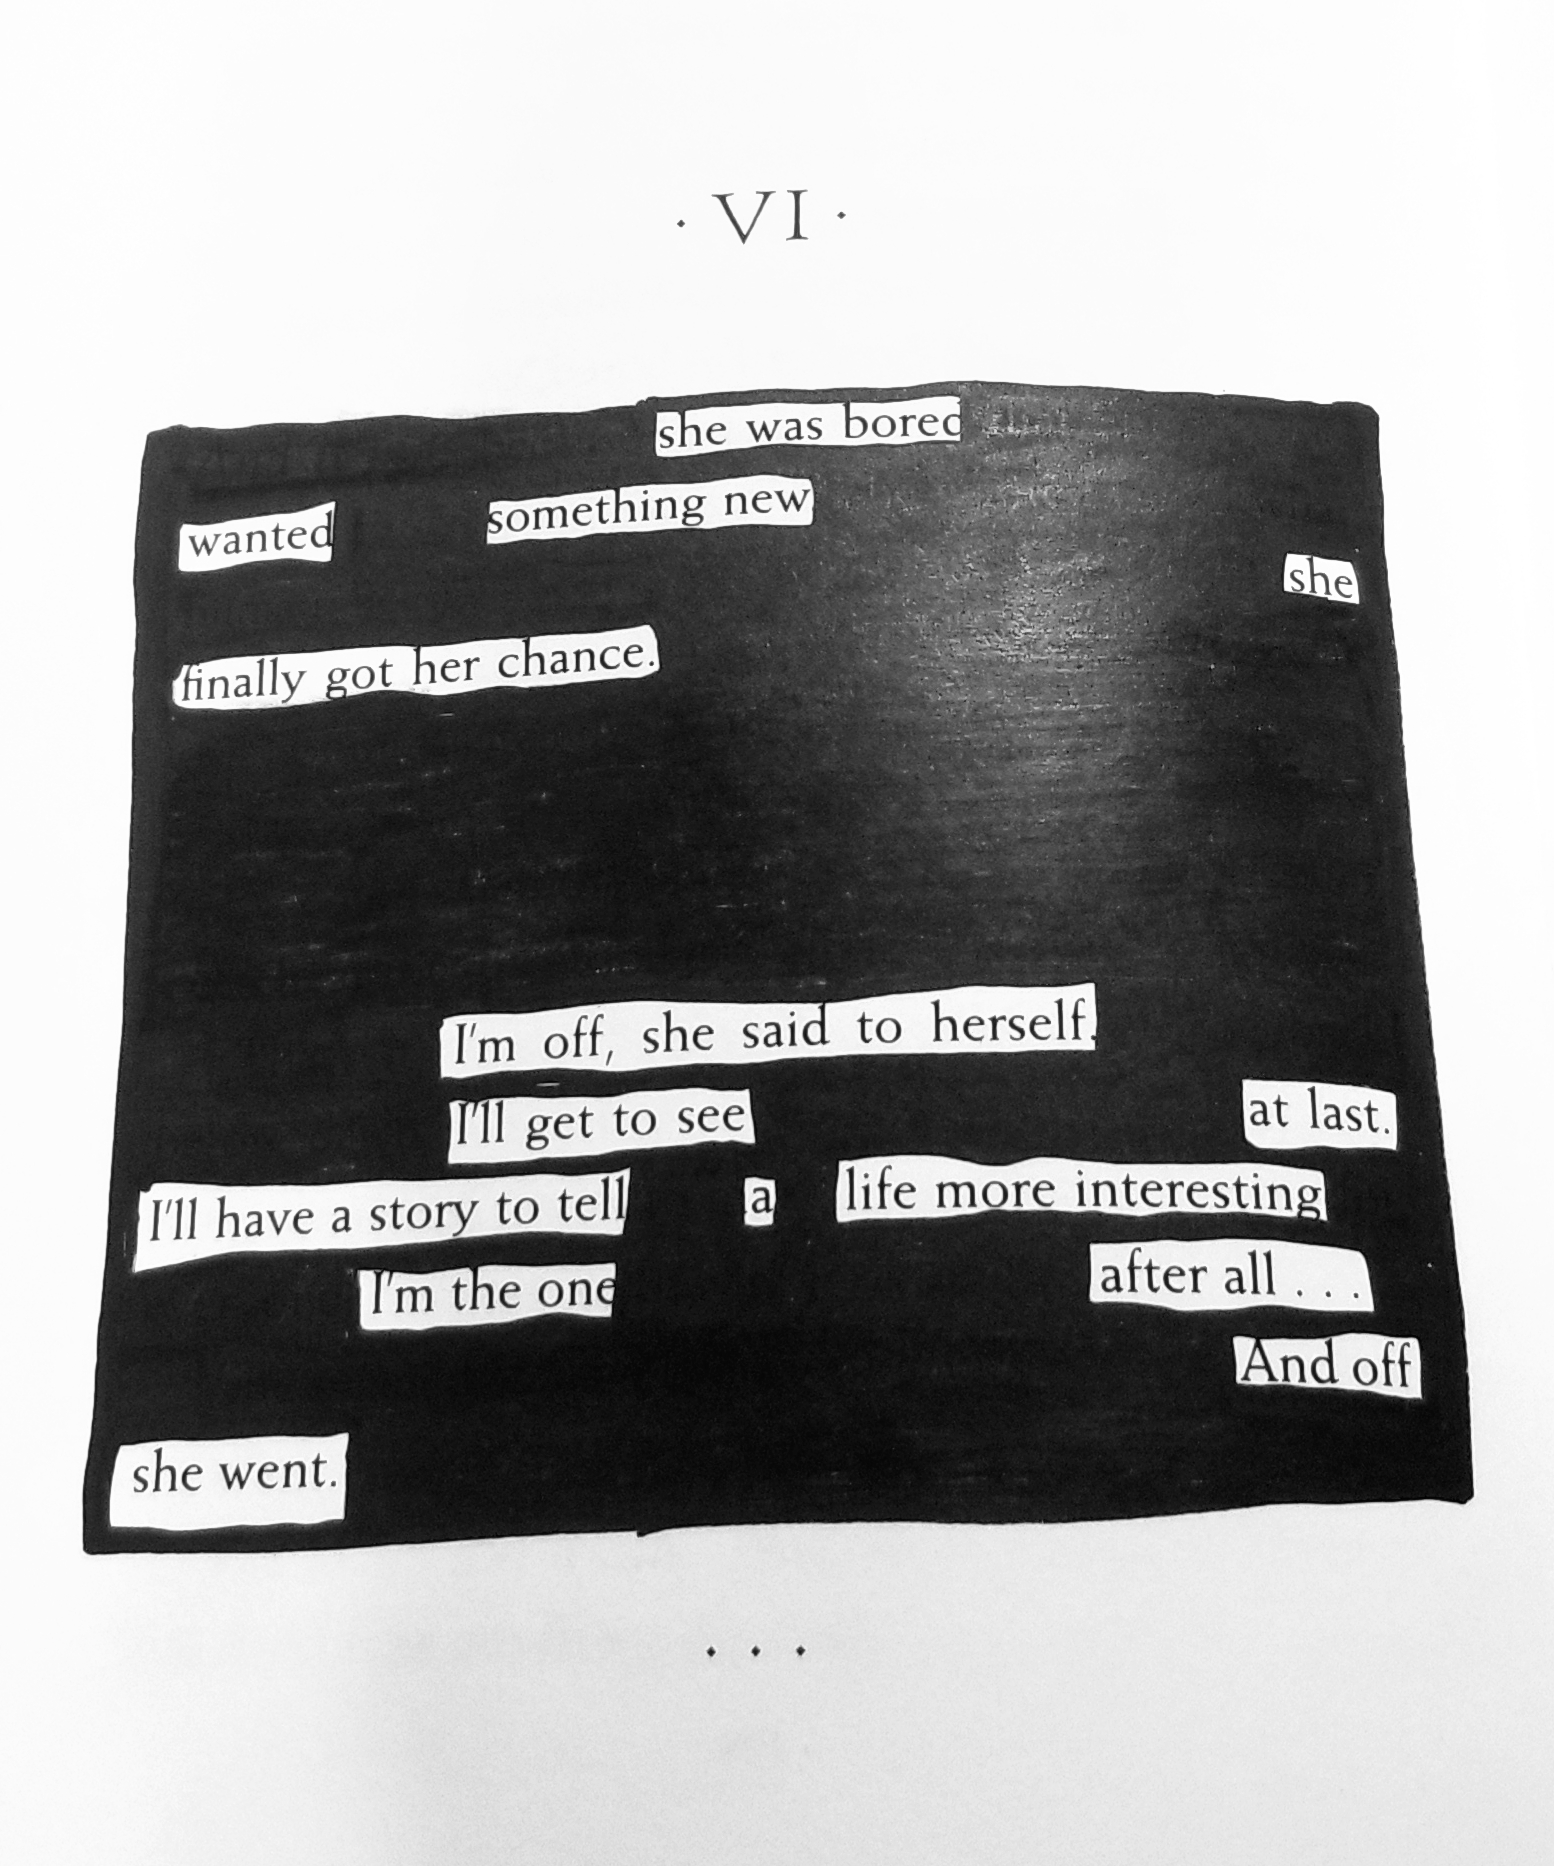 · VI ·
she was bored
wanted something new
she
finally got her chance.
I'm off, she said to herself.
I'll get to see at last.
I'll have a story to tell a life more interesting
I'm the one after all . . .
And off
she went.
. . .